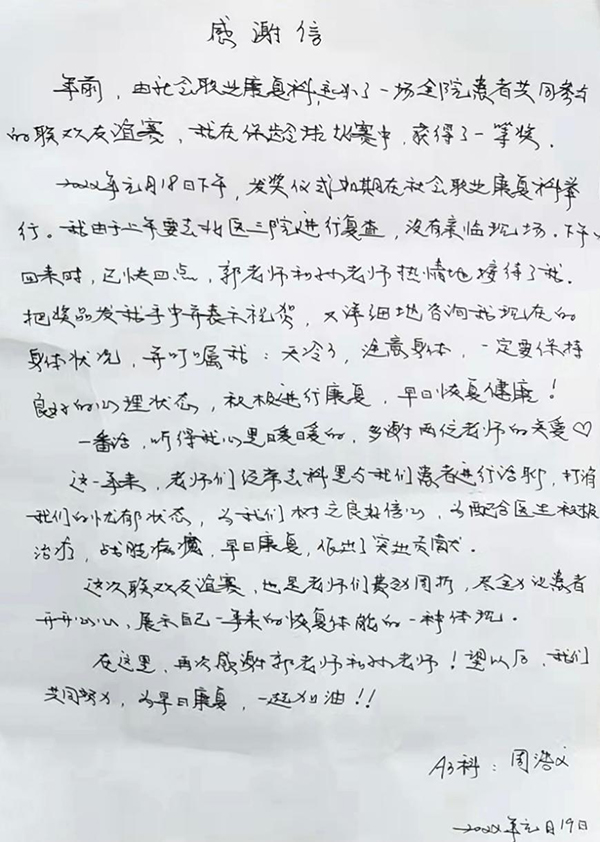 感谢信
年前，由社会职业康复科，举办了一场全院患者共同参与
的联欢友谊赛，我在保龄球比赛中，获得了一等奖。
2022年元月18日下午，发奖仪式如期在社会职业康复科举
行。我由于上午要去北区三院进行复查，没有亲临现场。下午
回来时，已快四点，郭老师和孙老师热情地接待了我。
把奖品发我手中并表示祝贺，又详细地咨询我现在的
身体状况，并叮嘱我：天冷了，注意身体，一定要保持
良好的心理状态，积极进行康复，早日恢复健康！
一番话，听得我心里暖暖的，多谢两位老师的关爱♡
这一年来，老师们经常去科里与我们患者进行话聊，打消
我们的忧郁状态，为我们树立良好信心，为配合医生积极
治疗，战胜病魔，早日康复，做出了突出贡献。
这次联欢友谊赛，也是老师们费尽周折，尽全力让患者
开开心心，展示自己一年来的恢复体能的一种体现。
在这里，再次感谢郭老师和孙老师！望以后，我们
共同努力，为早日康复，一起加油！！
A3科：周浩文
2022年元月19日